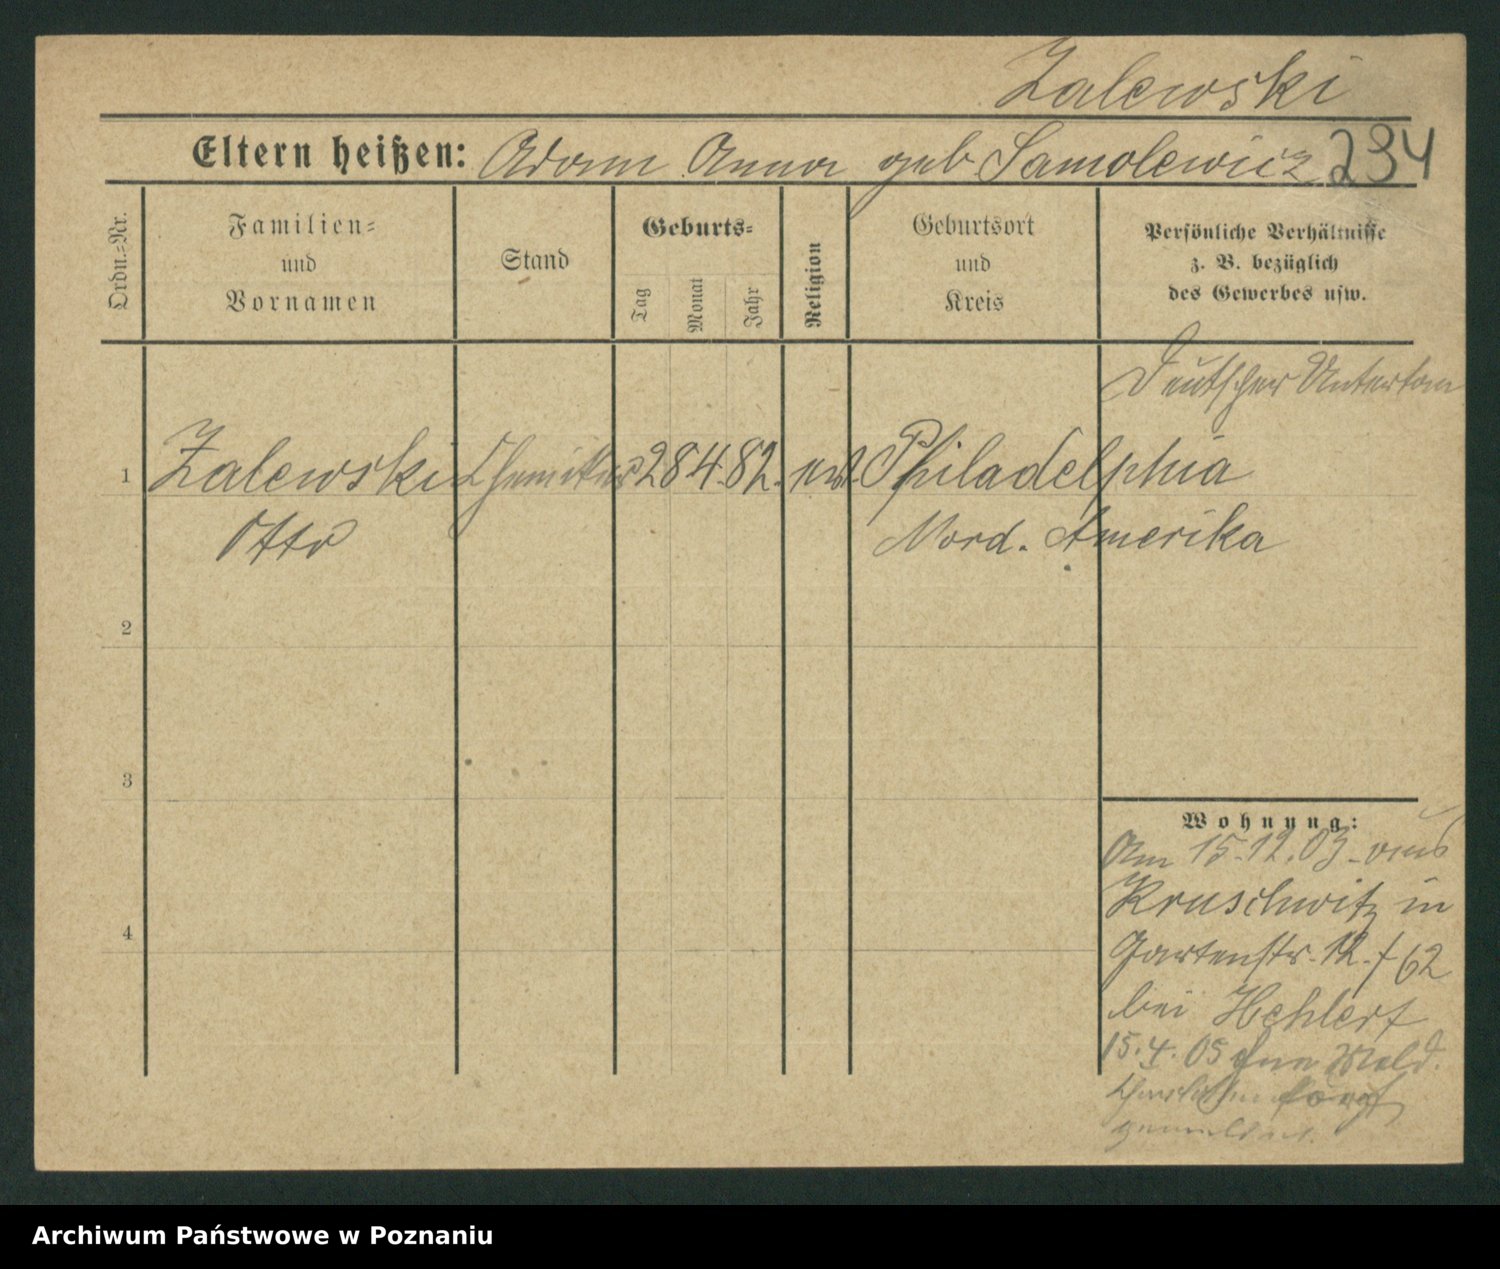 Zalewski
Eltern heißen: Adam Anna geb Samolewicz 234
Ordn.=Nr.
Familien=
und
Vornamen
Stand
Geburts=
Tag
Monat
Jahr
Religion
Geburtsort
und
Kreis
Persönliche Verhältnisse
z. B. bezüglich
des Gewerbes usw.
Deutscher Untertan
1 Zalewski Chemiker 28 4. 82. Philadelphia
Otto Nord. Amerika
2
3
4
Wohnung:
Am 15.12.03 aus
Kruschwitz in
Gartenstr. 12. f 62
bei Hehlert
15.4.05 Meld.